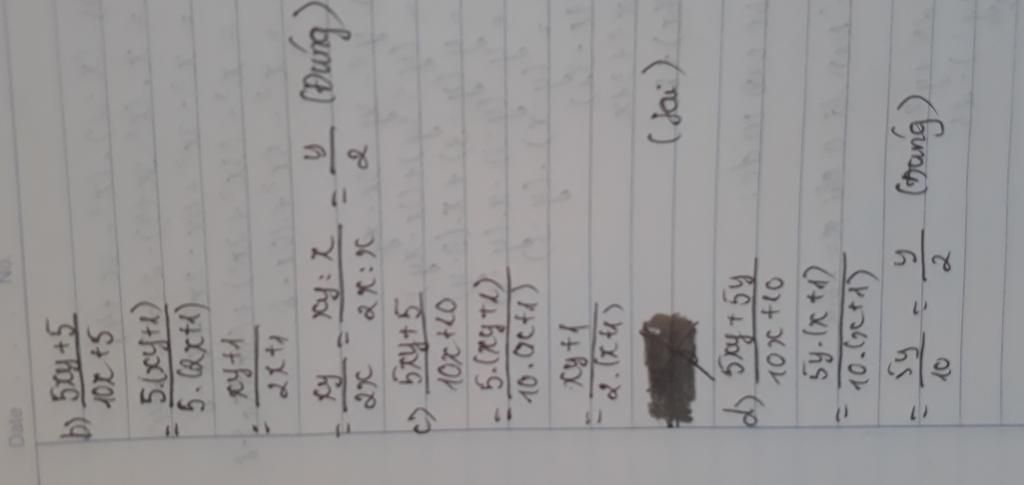 Date
No.
b) (5xy+5)/(10x+5)
= (5.(xy+1))/(5.(2x+1))
= (xy+1)/(2x+1)
= xy/2x = (xy:x)/(2x:x) = y/2 (Đúng)
c) (5xy+5)/(10x+10)
= (5.(xy+1))/(10.(x+1))
= (xy+1)/(2.(x+1))
= (Sai)
d) (5xy+5y)/(10x+10)
= (5y.(x+1))/(10.(x+1))
= 5y/10 = y/2 (Đúng)